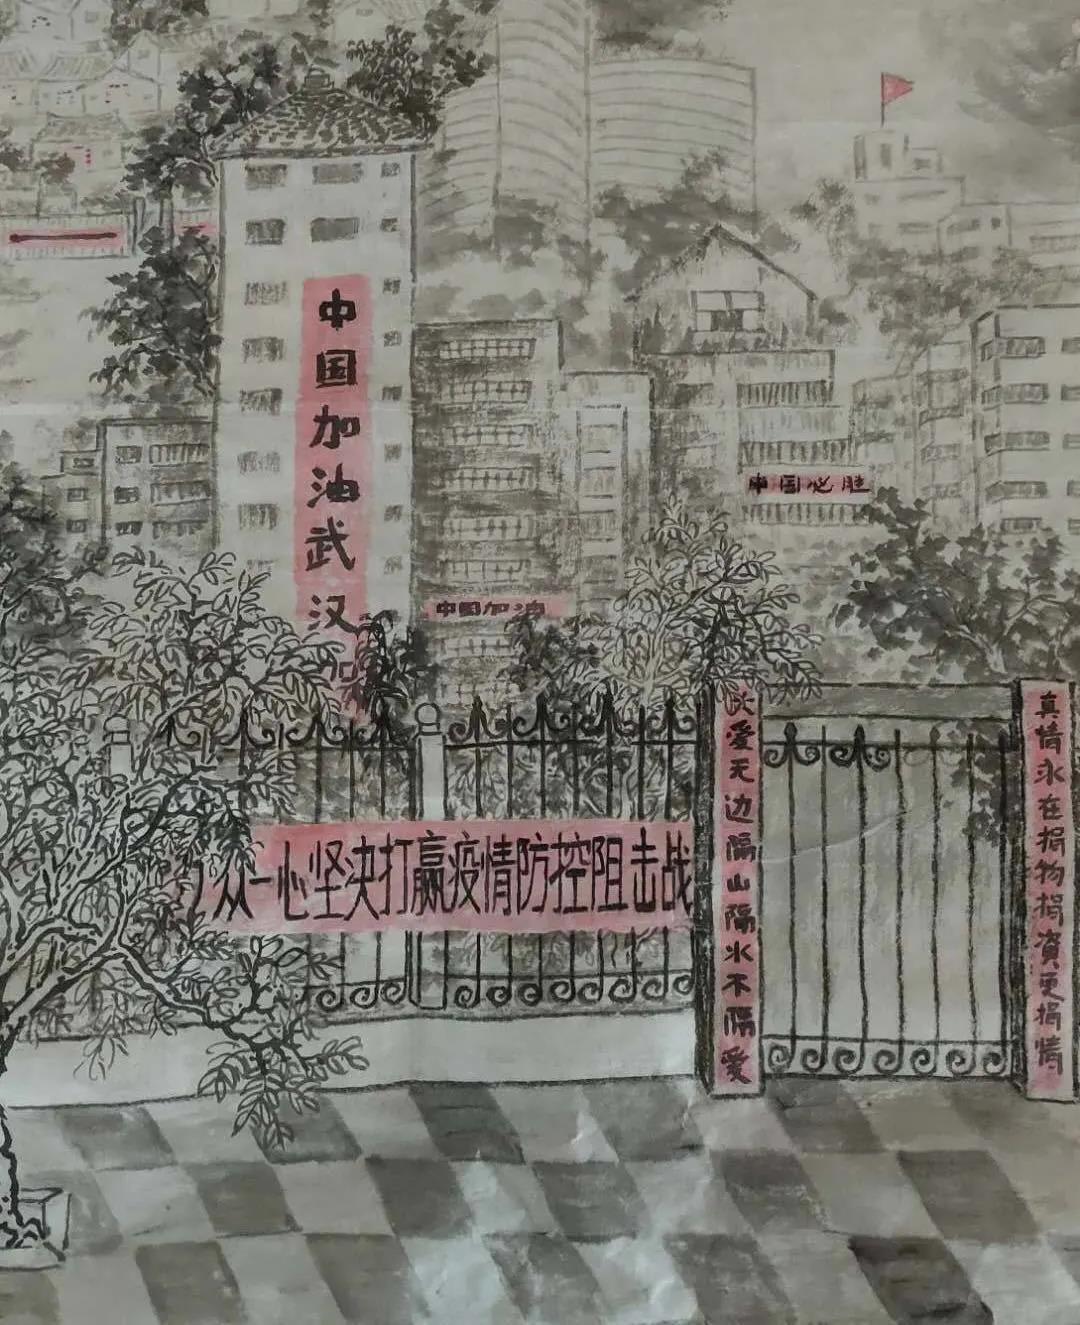 中国加油武汉加
中国必胜
中国加油
众一心坚决打赢疫情防控阻击战
爱无边隔山隔水不隔爱
真情永在捐物捐資更捐情